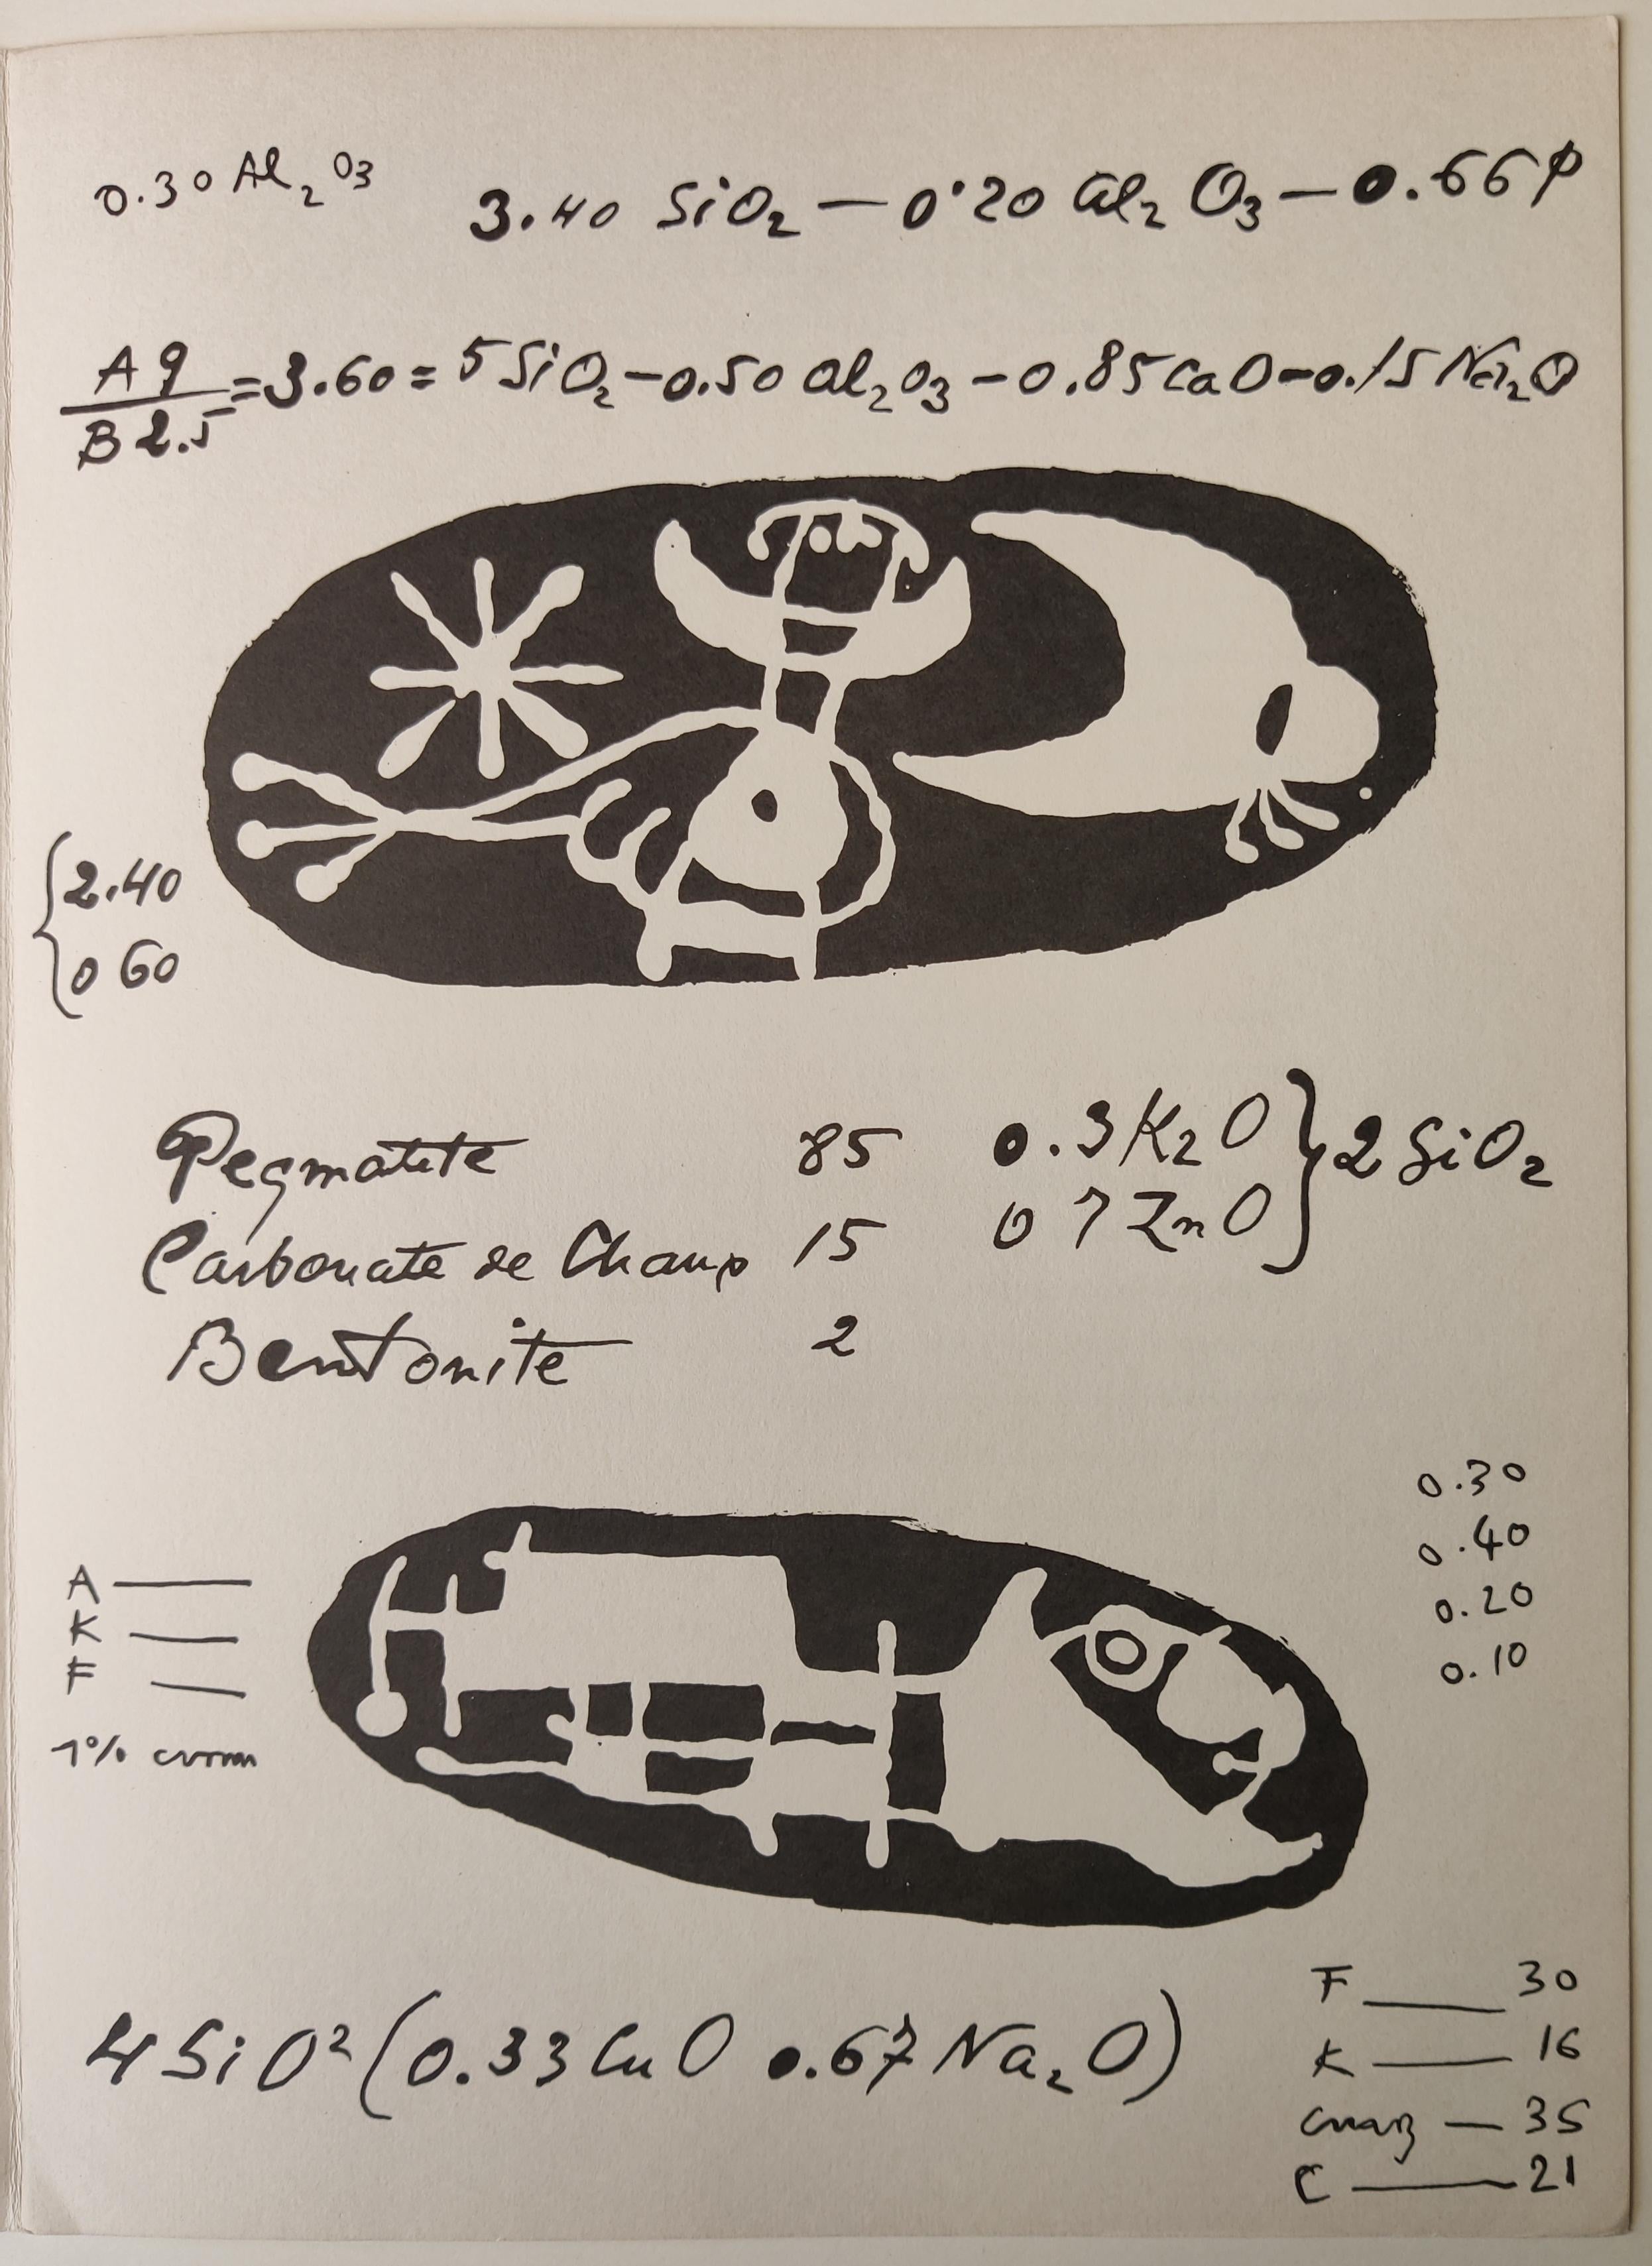 0.30 Al₂O₃
3.40 SiO₂ — 0.20 Al₂O₃ — 0.66 P
A 9 / B 2.5 = 3.60 = 5 SiO₂ - 0.50 Al₂O₃ - 0.85 CaO - 0.15 Na₂O
2.40
0 60
Pegmatite 85
Carbonate de Chaux 15
Bentonite 2
0.3 K₂O } 2 SiO₂
0 7 ZnO
0.30
0.40
0.20
0.10
A —
K —
F —
1%
4 SiO² (0.33 CuO 0.67 Na₂O)
F — 30
K — 16
— 35
C — 21